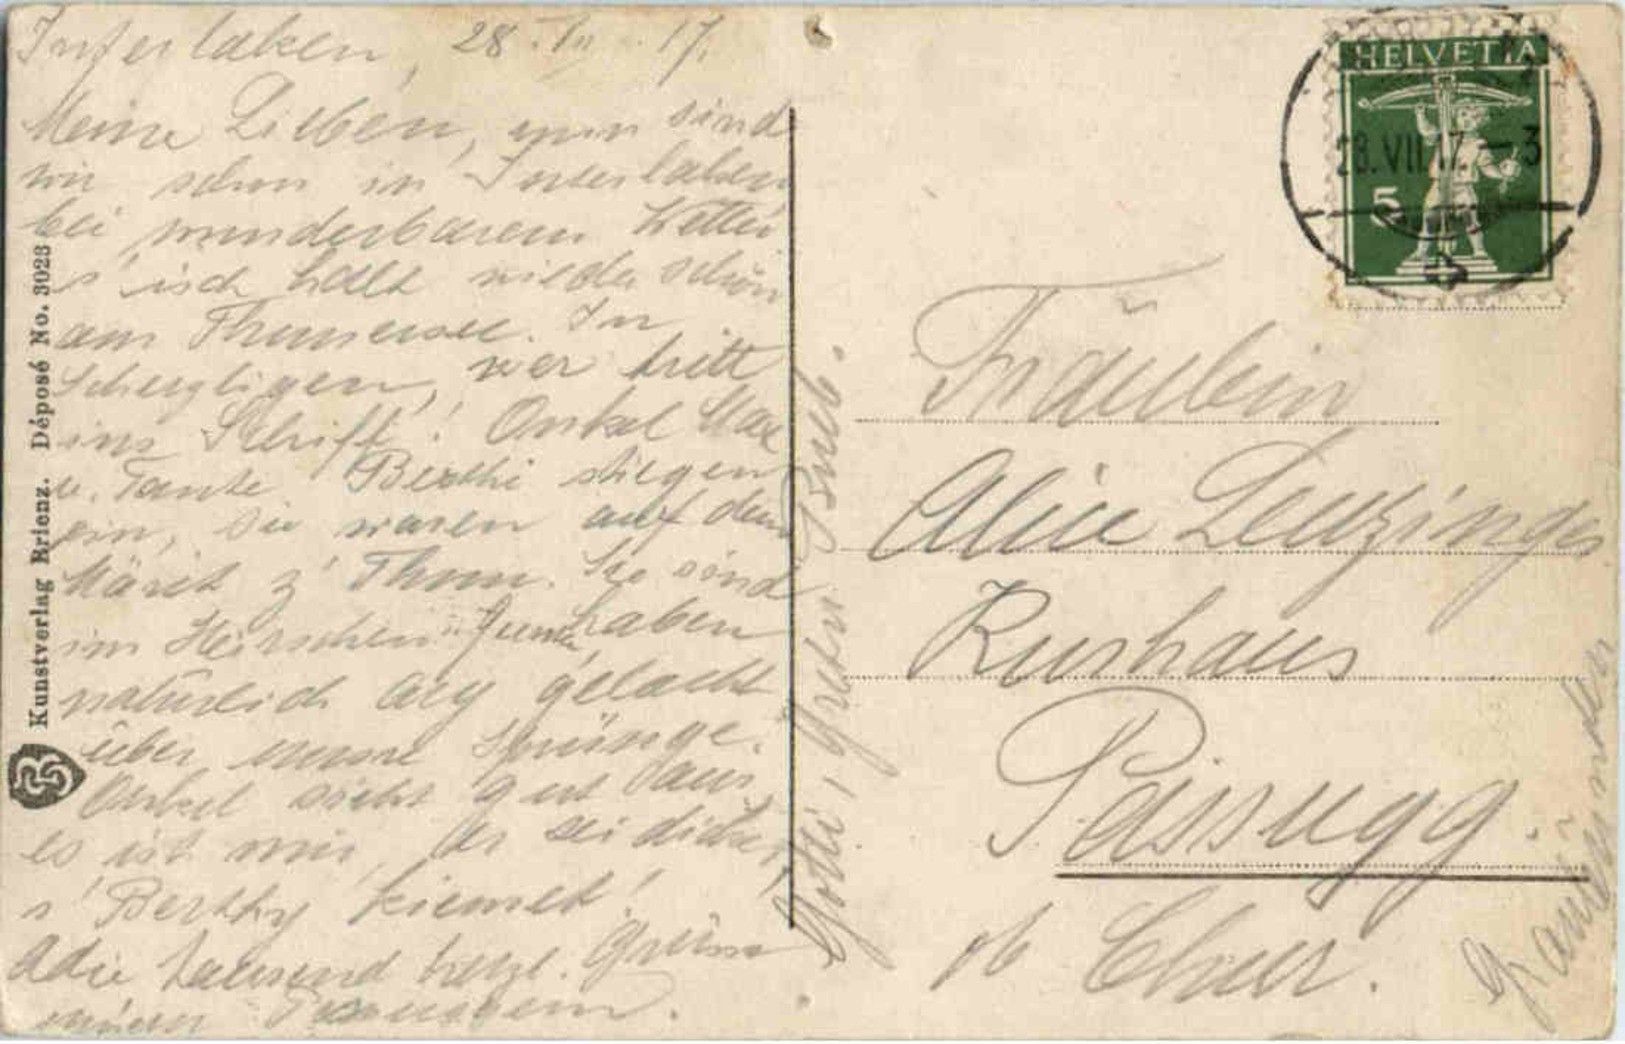 Interlaken, 28. VII. 17.
Meine Lieben, nun sind
wir schon in Interlaken
bei wunderbarem Wetter
s'isch halt wieder schön
am Thunersee. In
Scherzligen, wer tritt
ins Schiff! Onkel Max
u. Tante Berthi stiegen
ein, sie waren auf dem
Märit z' Thun. Sie sind
im Hirschen haben
natürlich arg gelacht
über unsre Sprünge.
Onkel sieht gut aus
es ist mir, er sei dicker,
s' Berthy
Adie tausend herzl. Grüsse
Kunstverlag Brienz. Déposé No. 3023
Gotti, Greten
HELVETIA
5
28.VII.17.-3
Fräulein
Alice Leuzinger
Kurhaus
Passugg.
ob Chur.
Graubünden